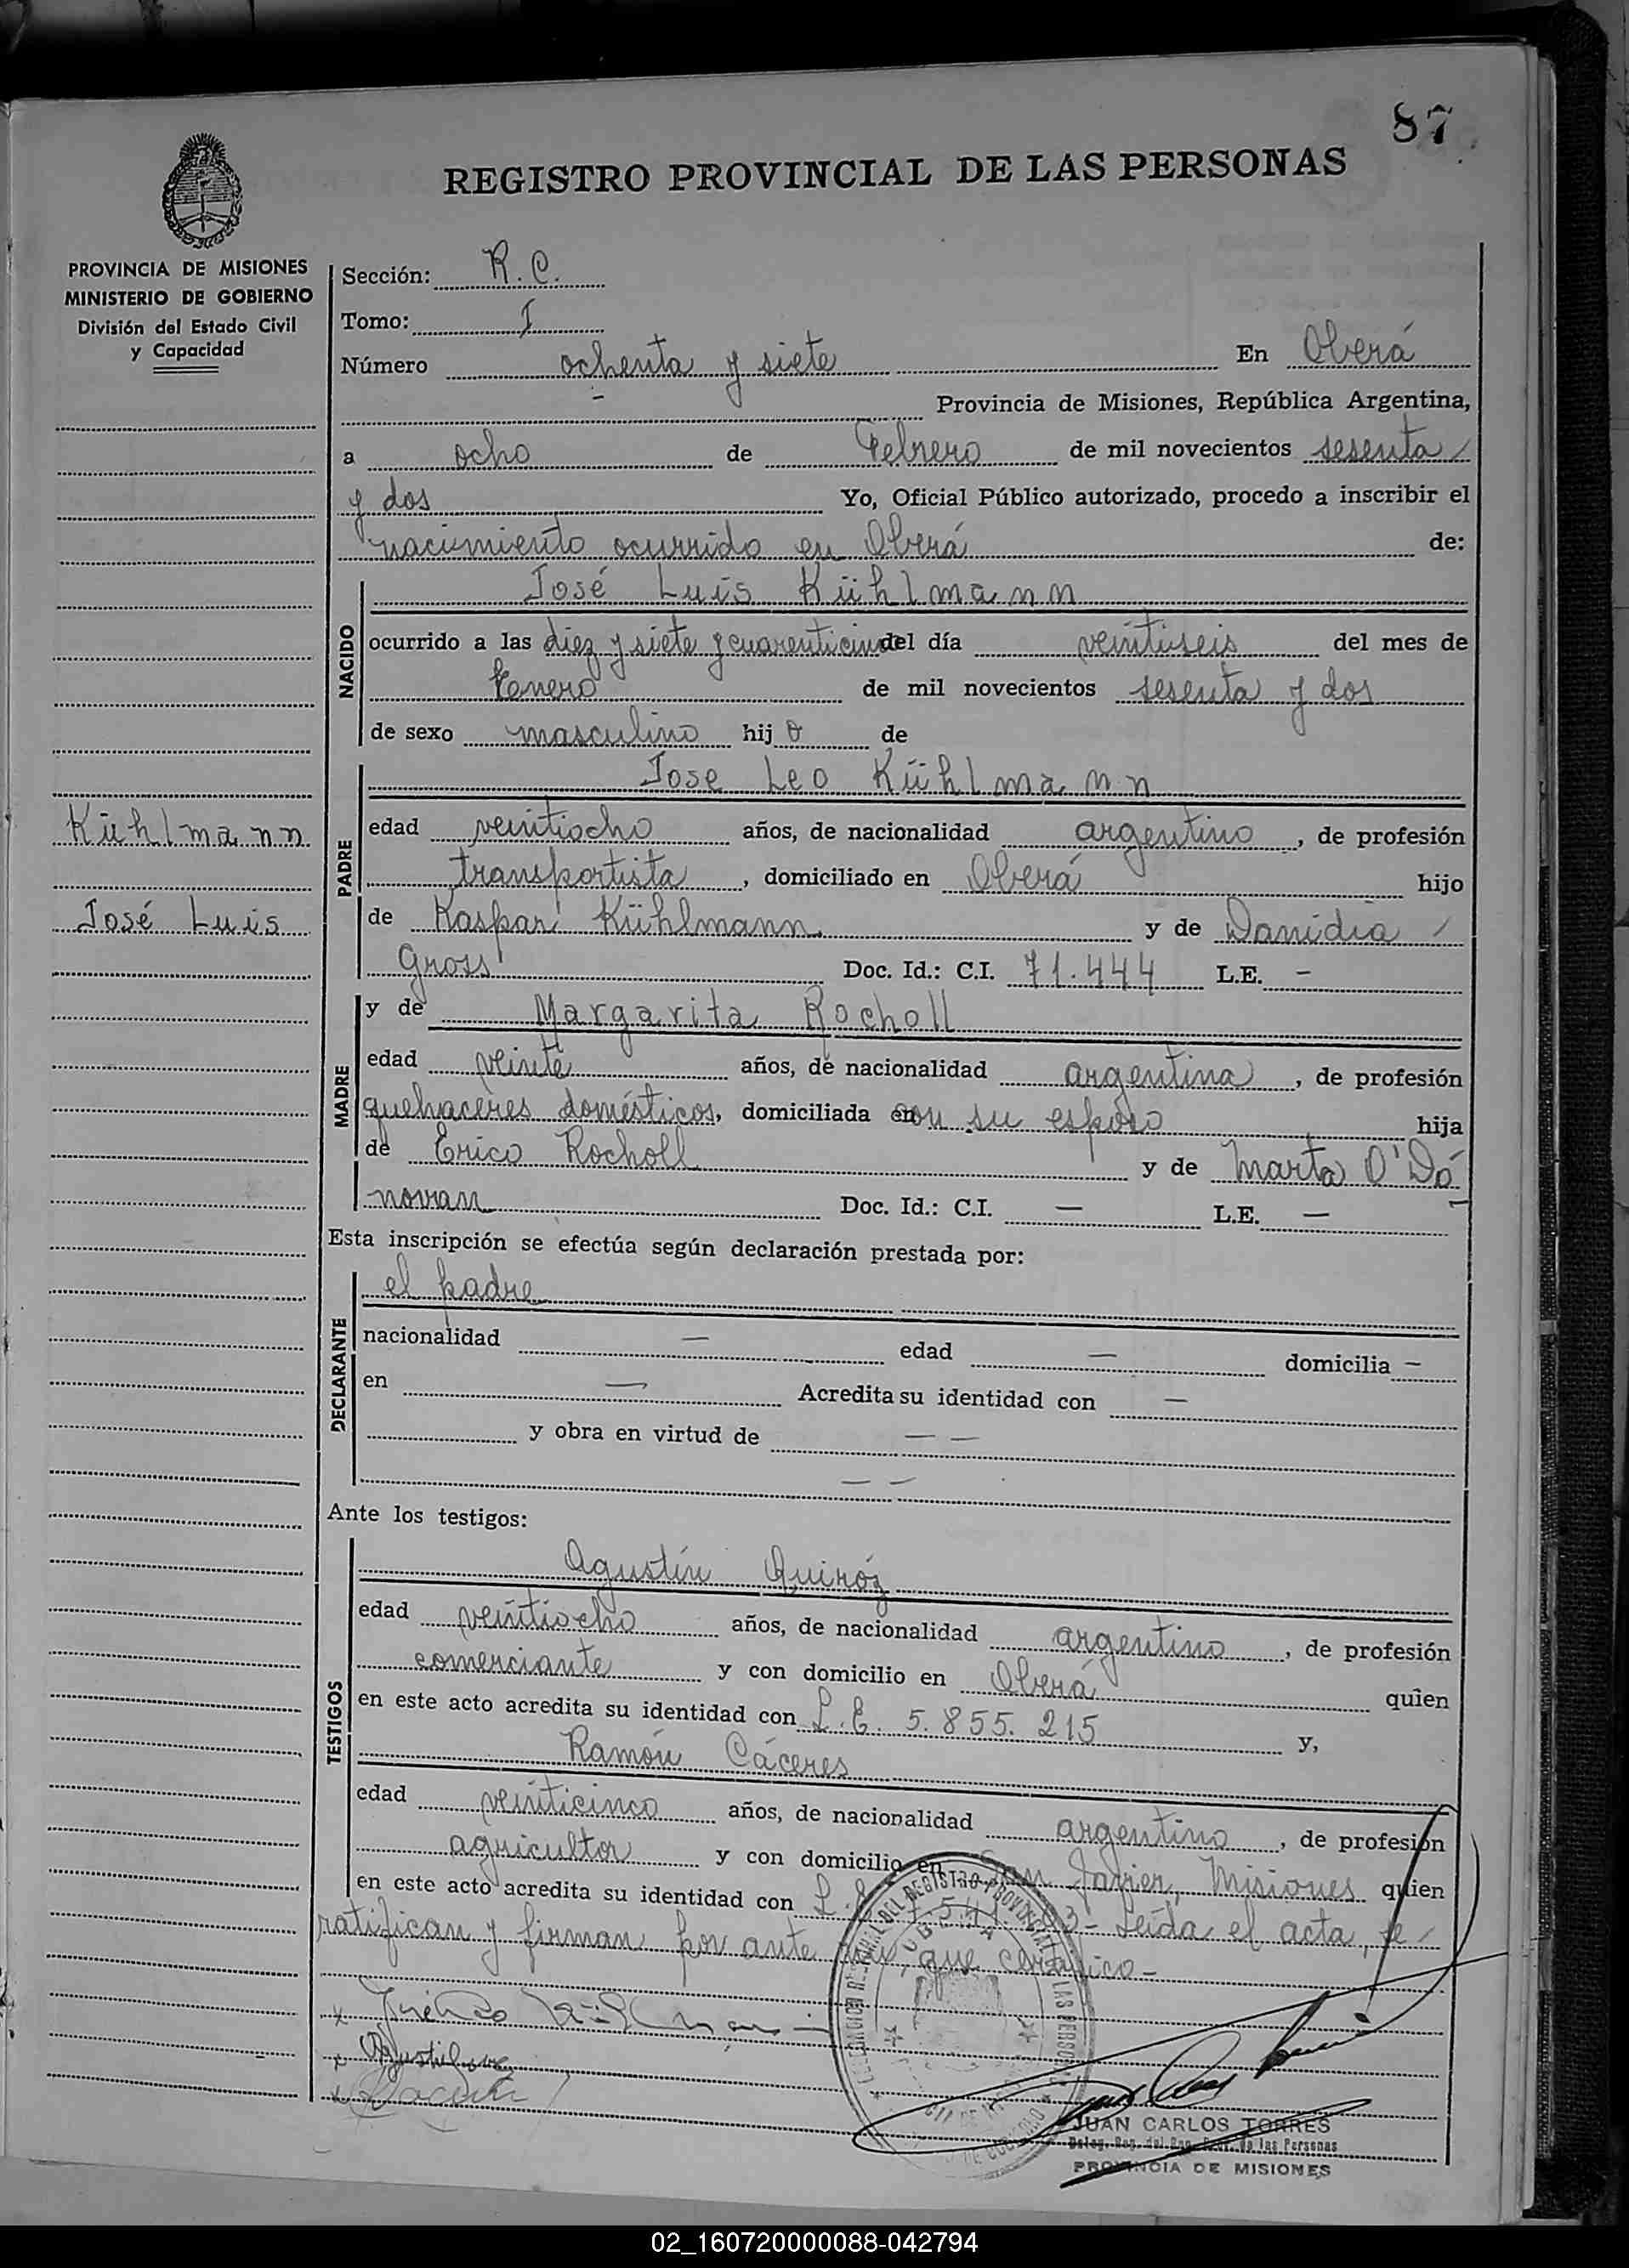 87
REGISTRO PROVINCIAL DE LAS PERSONAS
PROVINCIA DE MISIONES
MINISTERIO DE GOBIERNO
División del Estado Civil
y Capacidad
Sección: R. C.
Tomo: I
Número ochenta y siete En Oberá
Provincia de Misiones, República Argentina,
a ocho de Febrero de mil novecientos sesenta
y dos Yo, Oficial Público autorizado, procedo a inscribir el
nacimiento ocurrido en Oberá de:
NACIDO
José Luis Kühlmann
ocurrido a las diez y siete y cuarenticinco del día veintiseis del mes de
Enero de mil novecientos sesenta y dos
de sexo masculino hijo de
PADRE
Jose Leo Kühlmann
Kühlmann
edad veintiocho años, de nacionalidad argentino, de profesión
transportista, domiciliado en Oberá hijo
José Luis
de Kaspar Kühlmann y de Danidia
Gross Doc. Id.: C.I. 71.444 L.E. -
MADRE
y de Margarita Rocholl
edad veinte años, de nacionalidad argentina, de profesión
quehaceres domésticos, domiciliada en con su esposo hija
de Erico Rocholl y de Marta O'Dó
novan Doc. Id.: C.I. - L.E. -
Esta inscripción se efectúa según declaración prestada por:
DECLARANTE
el padre
nacionalidad - edad - domicilia -
en - Acredita su identidad con -
y obra en virtud de - -
- -
Ante los testigos:
TESTIGOS
Agustín Quiróz
edad veintiocho años, de nacionalidad argentino, de profesión
comerciante y con domicilio en Oberá quien
en este acto acredita su identidad con L.E. 5.855.215 y,
Ramón Cáceres
edad veinticinco años, de nacionalidad argentino, de profesión
agricultor y con domicilio en San Javier, Misiones quien
en este acto acredita su identidad con L.E. Leída el acta, se
ratifican y firman por ante mí, que certifico-
JUAN CARLOS TORRES
Deleg. Reg. del Reg. Prov. de las Personas
PROVINCIA DE MISIONES
02_160720000088-042794